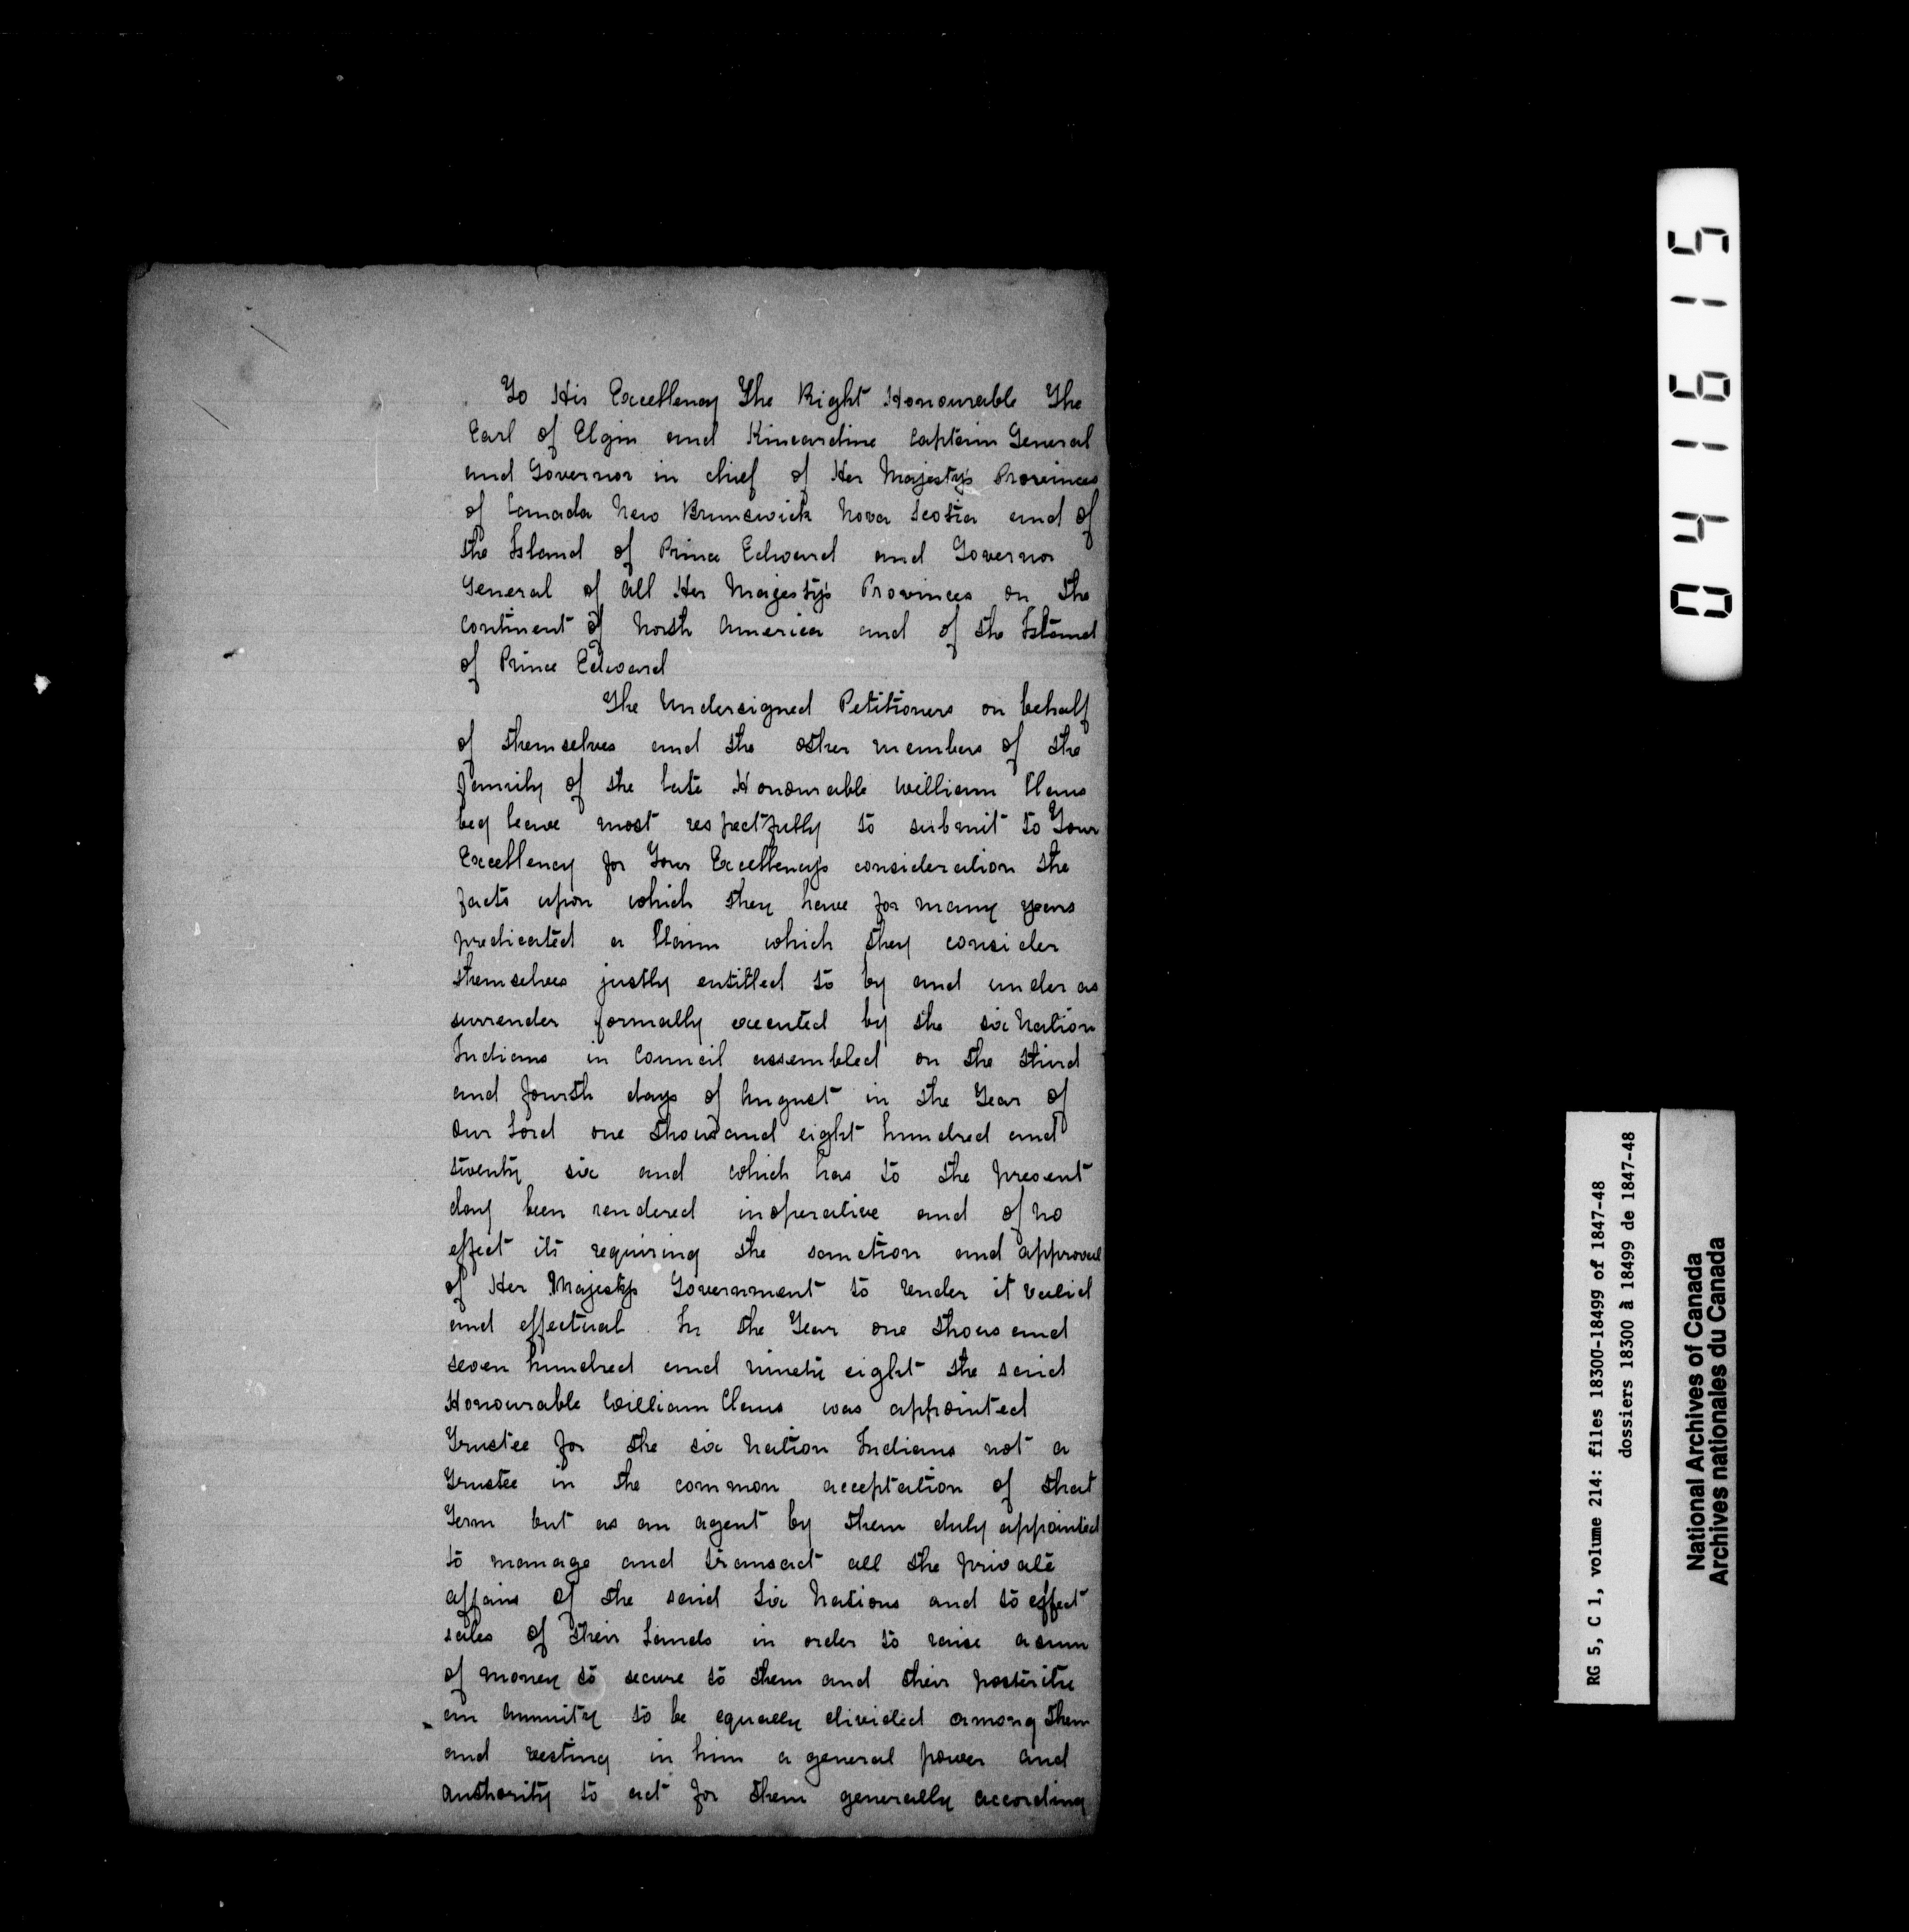 To His Excellency The Right Honourable The
Earl of Elgin and Kincardine Captain General
and Governor in chief of Her Majesty's Provinces
of Canada New Brunswick Nova Scotia and of
the Island of Prince Edward and Governor
General of all Her Majesty's Provinces on the
Continent of North America and of the Island
of Prince Edward
The Undersigned Petitioners on behalf
of themselves and the other members of the
family of the late Honourable William Claus
beg leave most respectfully to submit to Your
Excellency for Your Excellency's consideration the
facts upon which they have for many years
predicated a Claim which they consider
themselves justly entitled to by and under as
surrender formally executed by the six Nation
Indians in Council assembled on the third
and fourth days of August in the Year of
our Lord one thousand eight hundred and
twenty six and which has to the present
day been rendered inoperative and of no
effect its requiring the sanction and approval
of Her Majestys Government to render it valid
and effectual. In the Year one thousand
seven hundred and ninety eight the said
Honourable William Claus was appointed
Trustee for the six Nation Indians not a
Trustee in the common acceptation of that
Term but as an agent by them duly appointed
to manage and transact all the private
affairs of the said Six Nations and to effect
sales of their Lands in order to raise a sum
of money to secure to them and their posterity
an Annuity to be equally divided among them
and vesting in him a general power and
authority to act for them generally according
041615
RG 5, C 1, volume 214: files 18300-18499 of 1847-48
dossiers 18300 à 18499 de 1847-48
National Archives of Canada
Archives nationales du Canada